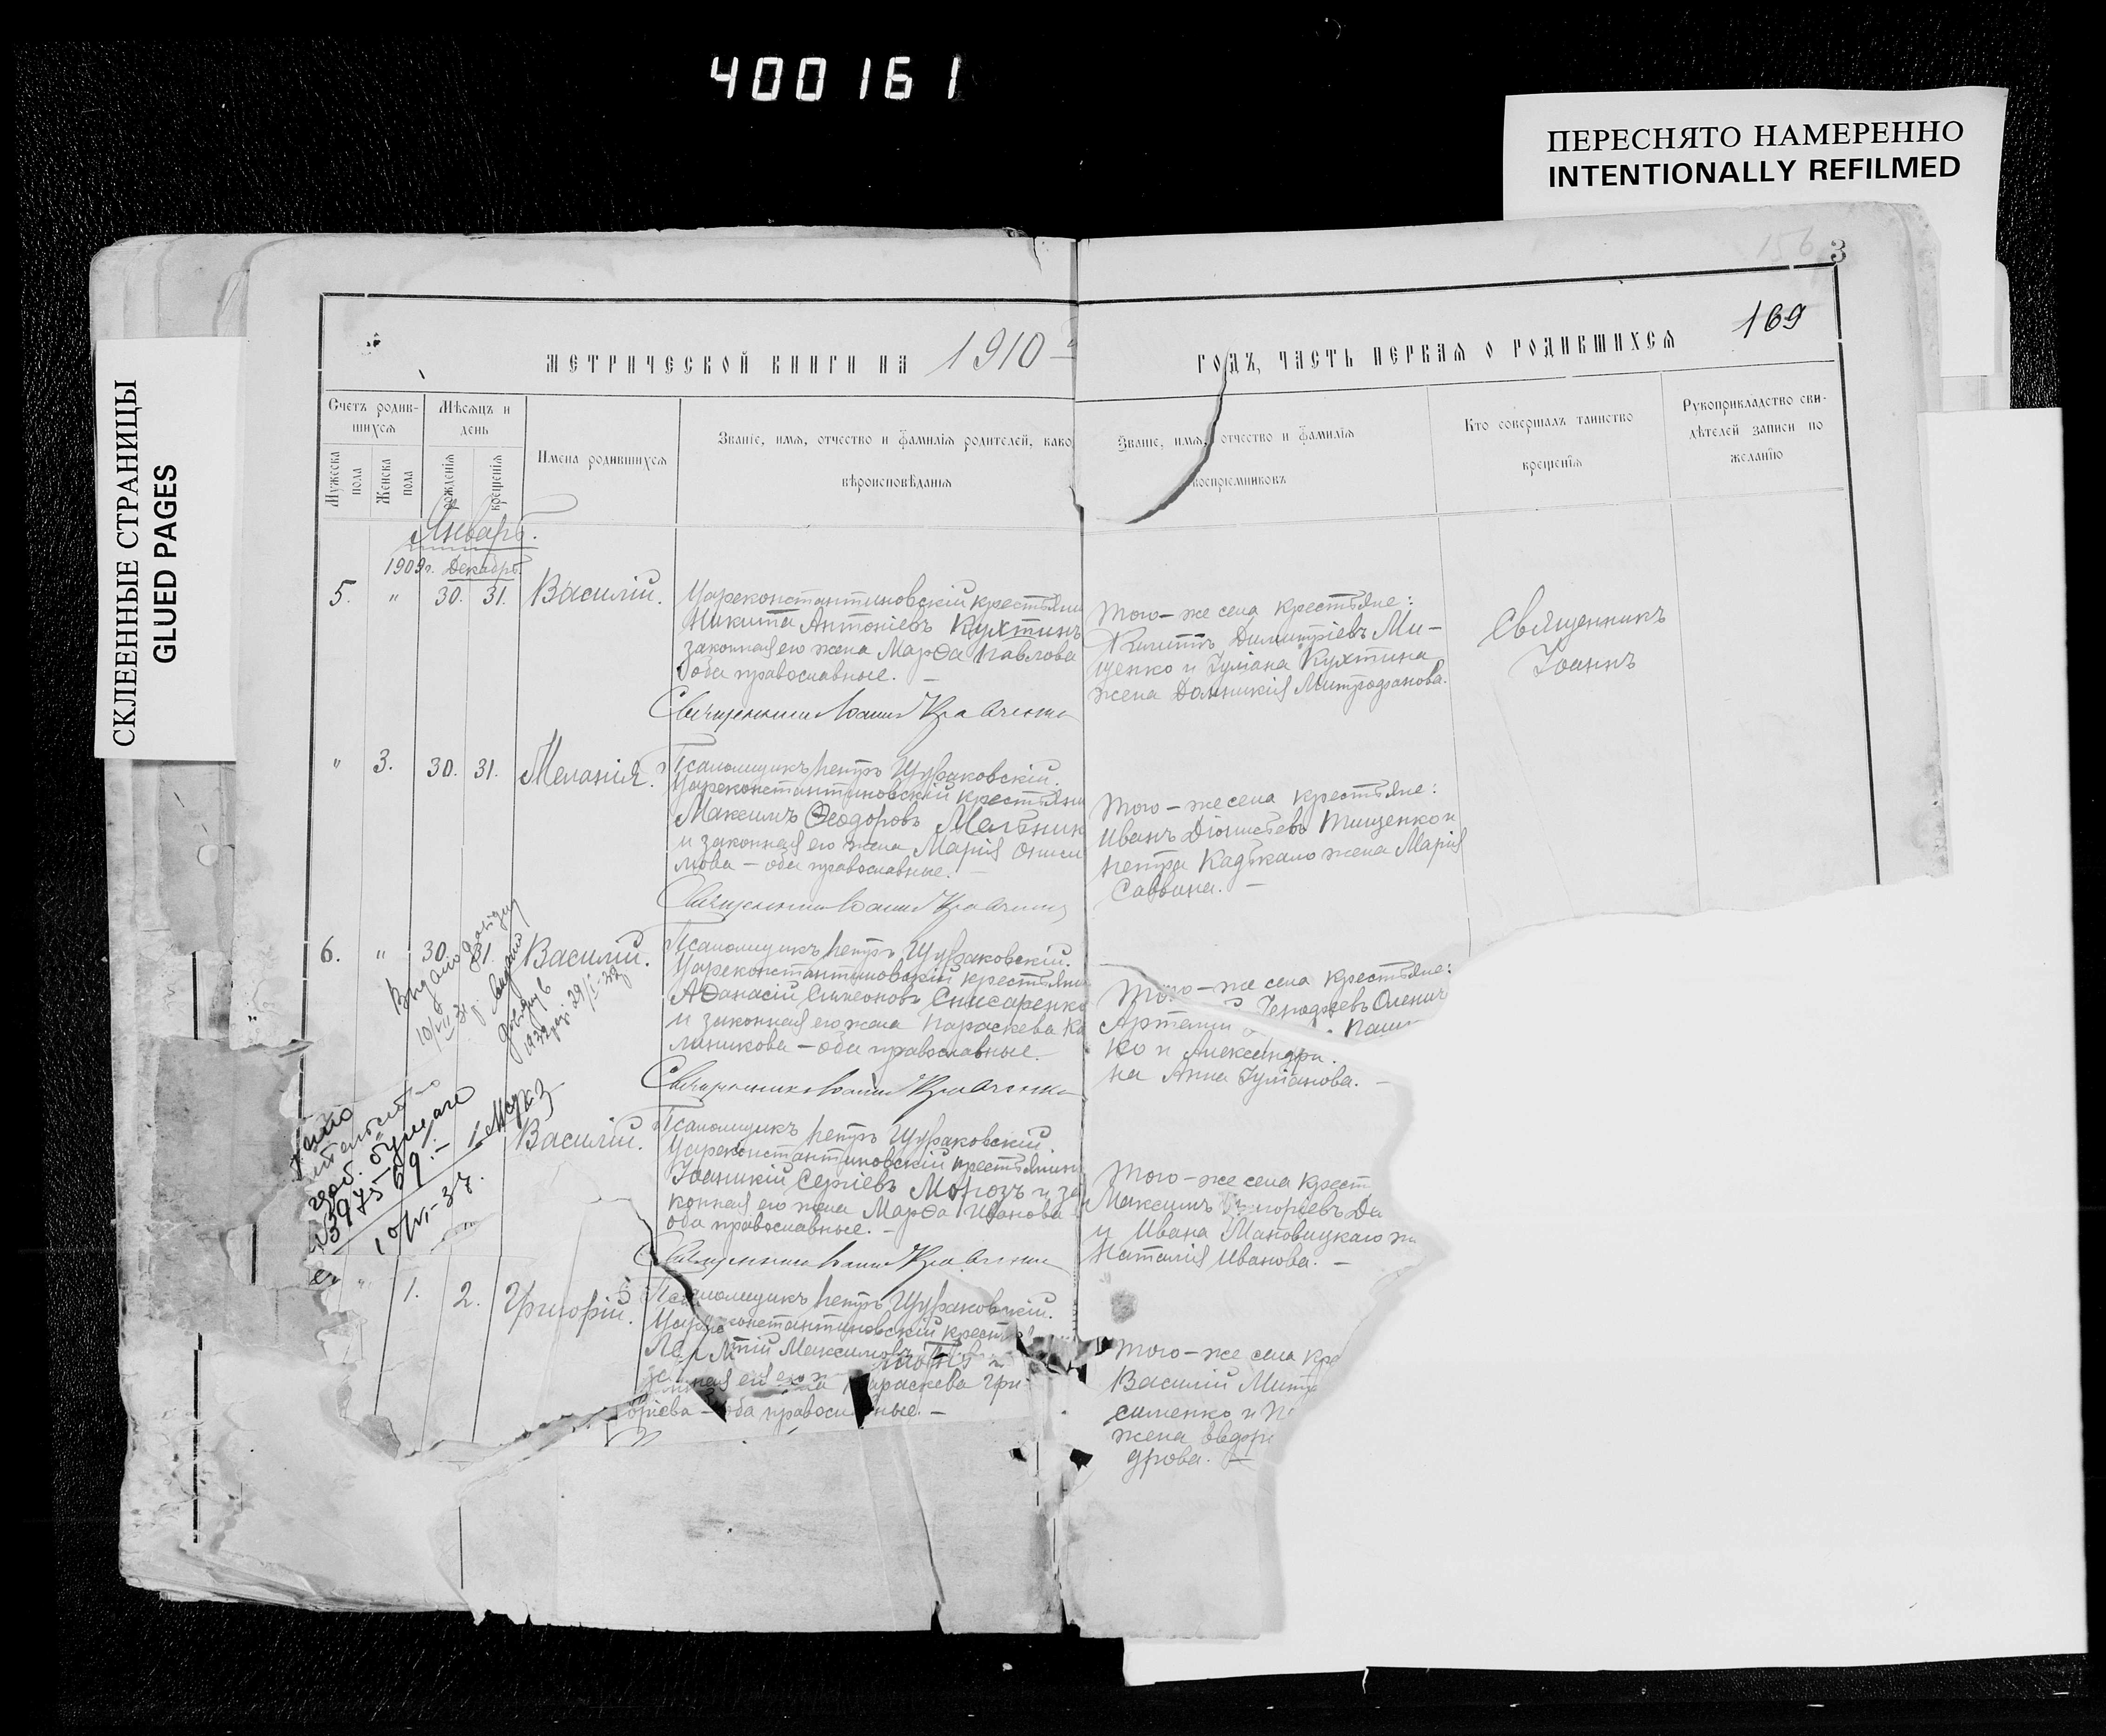 400161
ПЕРЕСНЯТО НАМЕРЕННО
INTENTIONALLY REFILMED
СКЛЕЕННЫЕ СТРАНИЦЫ
GLUED PAGES
156
3
169
МЕТРИЧЕСКОЙ КНИГИ НА 1910
ГОДЪ, ЧАСТЬ ПЕРВАЯ О РОДИВШИХСЯ
Счетъ родив-
шихся
Мѣсяцъ и
день
Мужеска
пола
Женска
пола
рожденія
крещенія
Имена родившихся
Званіе, имя, отчество и фамилія родителей, како
вѣроисповѣданія
Званіе, имя, отчество и фамилія
воспріемниковъ
Кто совершалъ таинство
крещенія
Рукоприкладство сви-
дѣтелей записи по
желанію
Январь.
1909г. Декабрь.
5. " 30. 31. Василій.
Цареконстантиновскій крестьяни
Никита Антоніевъ Кухтинъ
законная его жена Марѳа Павлова
оба православные. —
Священникъ Іоаннъ Кравченко
Того-же села крестьяне:
Димитріевъ Ми-
щенко и Іуліана Кухтина
жена Домникія Митрофанова.
Священникъ
Іоаннъ
" 3. 30. 31. Меланія.
Псаломщикъ Петръ Щураковскій.
Цареконстантиновскій крестьяни
Максимъ Ѳеодоровъ Мельник
и законная его жена Марія Ониси
мова — оба православные. —
Священникъ Іоаннъ Кравченко
Того-же села крестьяне:
Иванъ Діонисіевъ Тищенко и
Петра Кадѣкало жена Марія
Саввина. —
6. " 30. 31. Василій.
Псаломщикъ Петръ Щураковскій.
Цареконстантиновскій крестьяни
Аѳанасій Симеоновъ Снисаренко
и законная его жена Параскева Ка
линикова — оба православные. —
Священникъ Іоаннъ Кравченко
Того-же села крестьяне:
Артемій
ко и Александра
на Анна Іуліанова. —
Видано
10/VII 31
1932 29/I-32
бумаги
397569. —
10/VI-37.
Василій.
Псаломщикъ Петръ Щураковскій
Цареконстантиновскій крестьянин
Іоанникій Сергіевъ Морозъ и за
конная его жена Марѳа Иванова
оба православные. —
Священникъ Іоаннъ Кравченко
Того-же села крест
Максимъ Григоріевъ Да
и Ивана Мановицкаго ж
Наталія Иванова. —
" 1. 2. Григорій.
Псаломщикъ Петръ Щураковскій.
Цареконстантиновскій крест
Максимовъ
его Параскева Гри-
горіева — оба православные. —
Того-же села кре
Василій Митр
сименко и П
жена Евдок
дрова. —